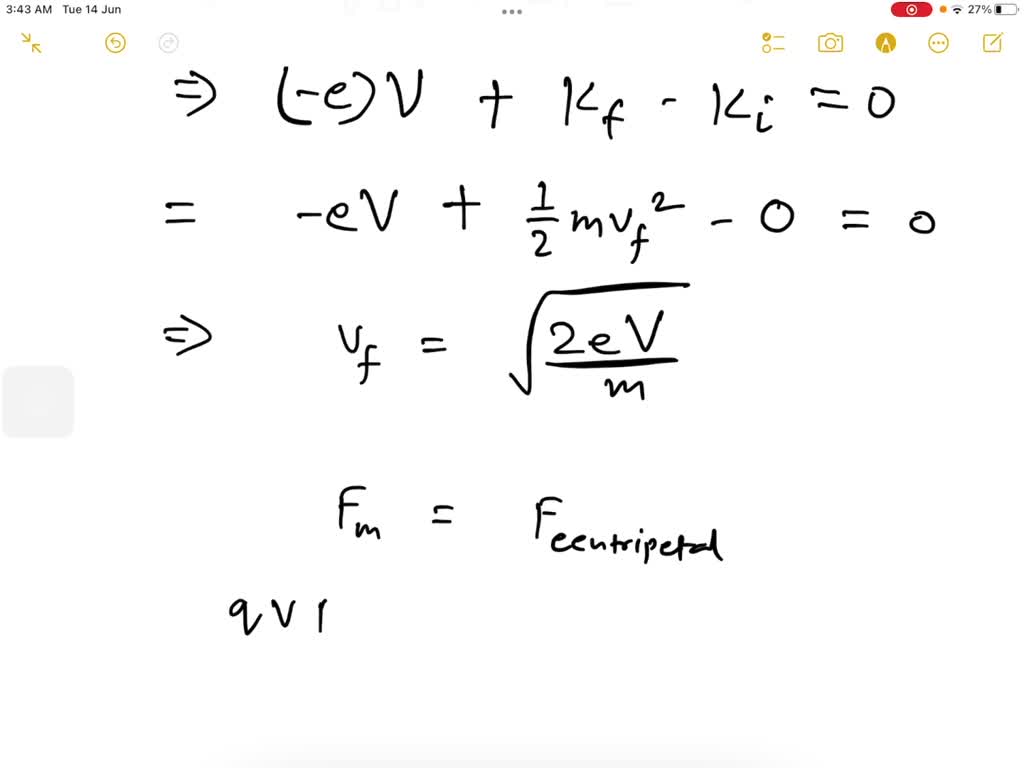 3:43 AM Tue 14 Jun 27%
⇒ (-e)V + Kf - Ki = 0
= -eV + 1/2 mvf² - 0 = 0
⇒ vf = √(2eV/m)
Fm = Fcentripetal
qv